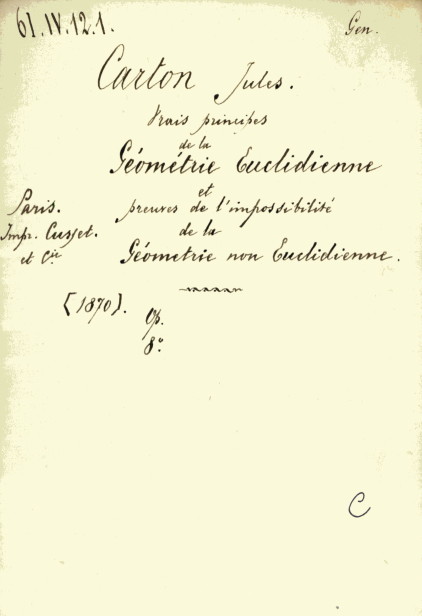 61.IV.12.1.
Gen.
Carton Jules.
Vrais principes
de la
Géométrie Euclidienne
et
preuves de l'impossibilité
de la
Géometrie non Euclidienne.
Paris.
Impr. Cusset.
et Cie
[1870].
Op.
8º.
C